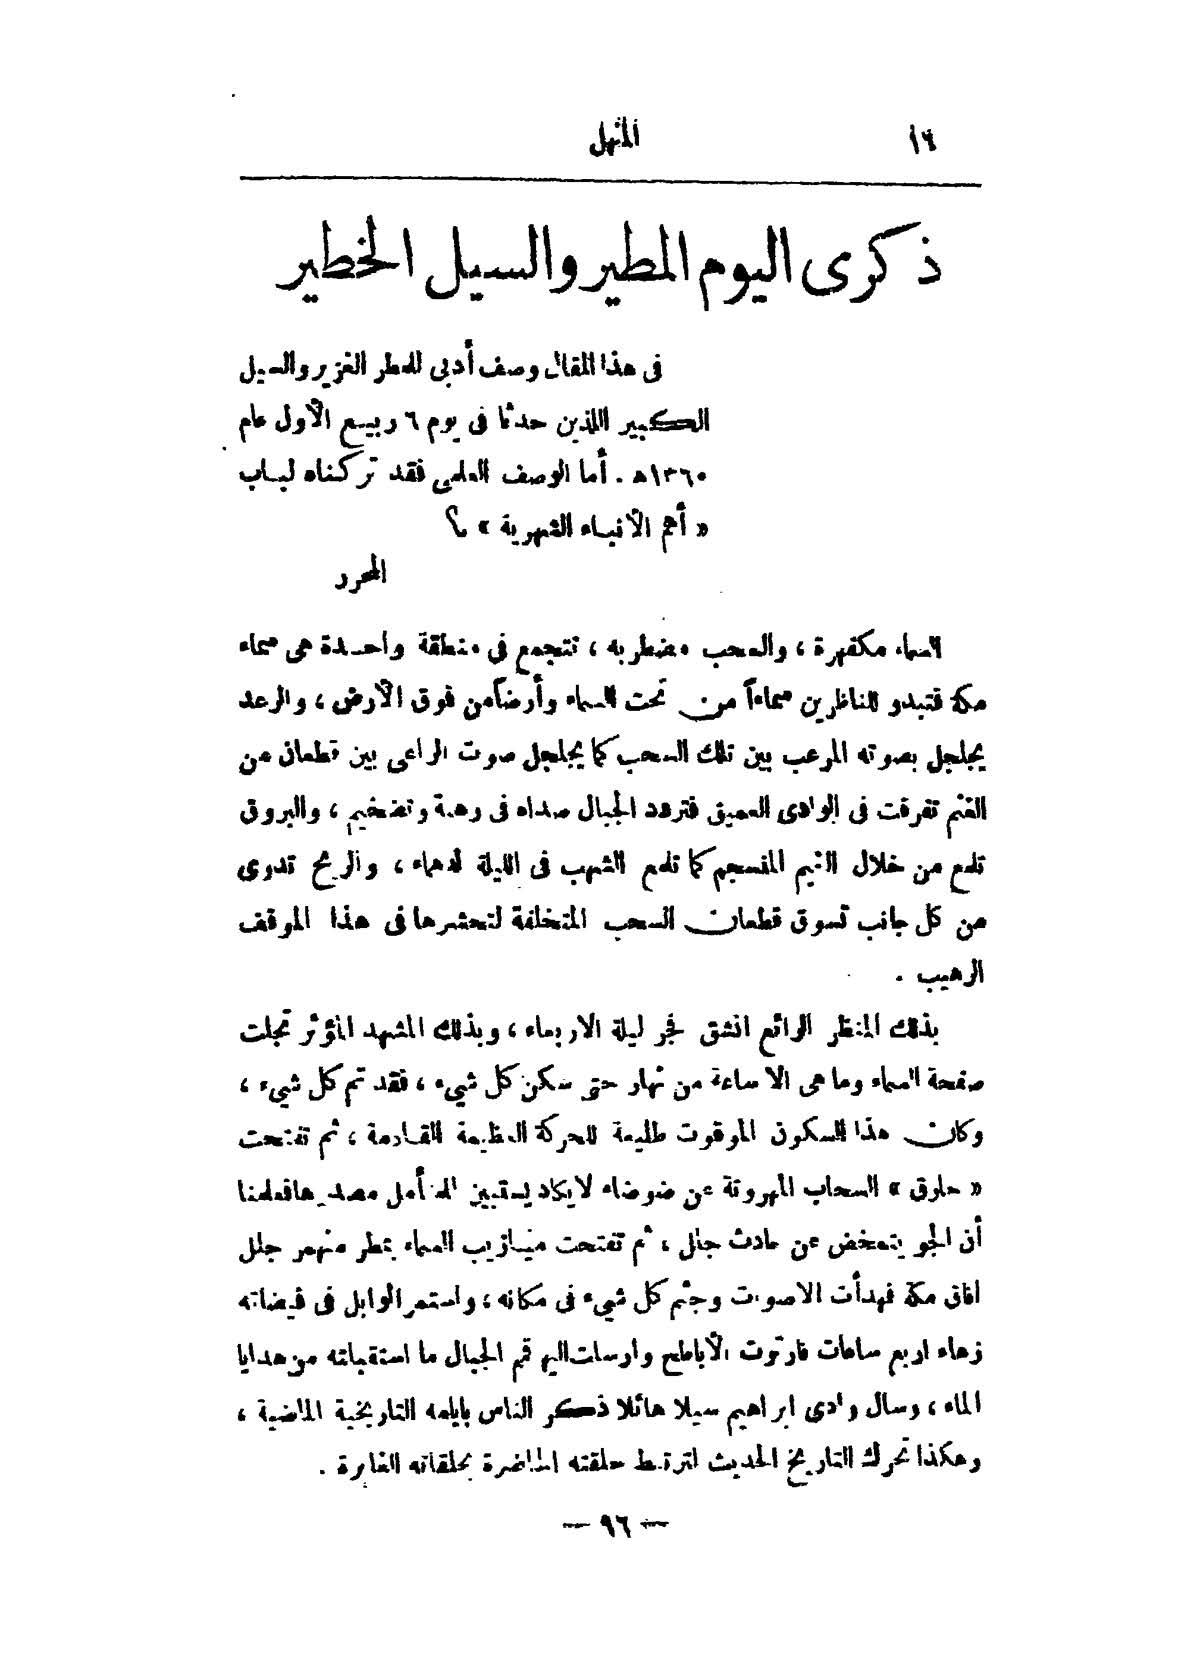 ١٦ المنهل
ذكرى اليوم المطير والسيل الخطير
فى هذا المقال وصف أدبى للمطر الغزير والسيل
الكبير اللذين حدثا فى يوم ٦ ربيع الأول عام
١٣٦٠ه . أما الوصف العلمى فقد تركناه لباب
« أهم الأنباء الشهرية » ؟
المحرر
السماء مكفهرة ، والسحب مضطربه ، تتجمع فى منطقة واحدة هى سماء
مكة فتبدو للناظرين سماءاً من تحت السماء وأرضاً من فوق الأرض ، والرعد
يجلجل بصوته المرعب بين تلك السحب كما يجلجل صوت الراعى بين قطعان من
الغنم تفرقت فى الوادى العميق فتردد الجبال صداه فى رهبة وتضخيم ، والبروق
تلمع من خلال الغيم المنسجم كما تلمع الشهب فى الليلة لدهماء ، والريح تدوى
من كل جانب تسوق قطعان السحب المتخلفة لتحشرها فى هذا الموقف
الرهيب .
بذلك المنظر الرائع انشق فجر ليلة الاربعاء ، وبذلك المشهد المؤثر تجلت
صفحة السماء وما هى الا ساعة من نهار حتى سكن كل شيء ، فقد تم كل شيء ،
وكان هذا السكون الموقوت طليعة للحركة العظيمة القادمة ، ثم تفتحت
« حلوق » السحاب المهروتة عن ضوضاء لا يكاد يستبين المتأمل مصدرها فعلمنا
أن الجو يتمخض عن حادث جلل ، ثم تفتحت ميازيب السماء بمطر منهمر جلل
افاق مكة فهدأت الاصوات وجثم كل شيء فى مكانه ، واستمر الوابل فى فيضانه
زهاء اربع ساعات فارتوت الأباطح وارسلت اليها قمم الجبال ما استقبلته من هدايا
الماء ، وسال وادى ابراهيم سيلا هائلا ذكر الناس بايامه التاريخية الماضية ،
وهكذا تحرك التاريخ الحديث لترتبط حلقته الحاضرة بحلقاته الغابرة .
— ٩٦ —